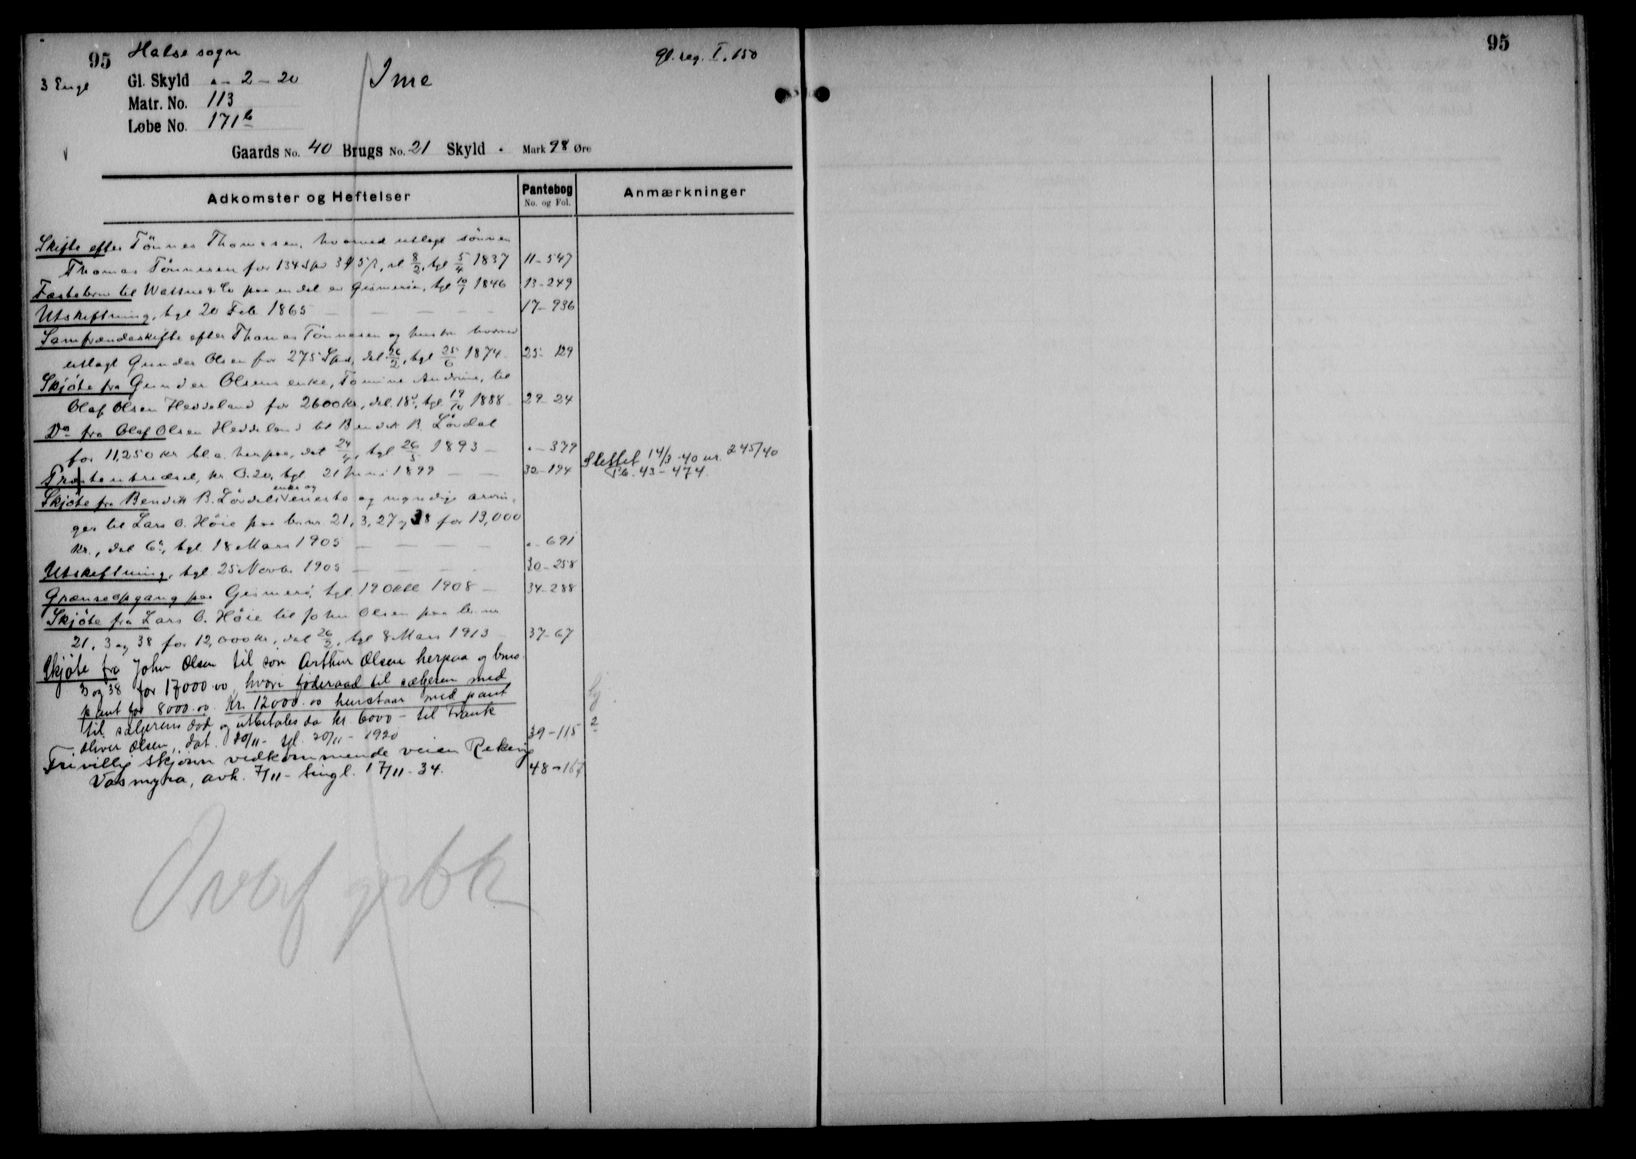 95
Halse sogn
gl. reg. I. 150
3 Engl
Gl. Skyld " - 2 - 20
Ime
Matr. No. 113
Løbe No. 171 b
Gaards No. 40 Brugs No. 21 Skyld . Mark 98 Øre
Adkomster og Heftelser
Pantebog
No. og Fol.
Anmærkninger
Skifte efter Tönnes Thomasen, hvorved utlagt sönnen
Thomas Tönnesen for 134 Spd 3 5 /, sl 8/2, tgl 5/4 1837 11-547
Fæstebrev til Wattne & Co paa en del av Gismerøen, tgl 10/7 1846 13-249
Utskiftning, tgl 20 Feb. 1865 — — — — 17-936
Samfrændeskifte efter Thomas Tönnesen og hustru hvorved
utlagt Gunder Olsen for 275 Spd, dat 26/2, tgl 25/6 1874 25-129
Skjöte fra Gunder Olsens enke, Tomine Andrine, til
Olaf Olsen Heddeland for 2600 kr, dat 18 d, tgl 19/10 1888 29-24
Do fra Olaf Olsen Heddeland til Bendik B. Lövdal
for 11,250 kr bl.a. herpaa, dat 24/4, tgl 26/5 1893 — "-379
utbrudd, kr. 0.20, tgl 21 Juni 1899 — — 32-194
Slettet 14/3-40 nr. 245/40
Pb. 43-474.
Skjöte fra Bendik B. Lövdals enke og eneste og myndige arvin-
ger til Lars O. Höie paa br.nr 21, 3, 27 og 38 for 13,000
kr, dat 6 d, tgl 18 Mars 1905 — — — "-691
Utskiftning, tgl 25 Novb. 1905 — — — 30-258
Grænseopgang paa Gismerö, tgl 19 Okt 1908 — 34-288
Skjöte fra Lars O. Höie til John Olsen paa br.nr
21, 3 og 38 for 12,000 kr, dat 26/2, tgl 8 Mars 1913 37-67
Skjöte fra John Olsen til sön Arthur Olsen herpaa og brno
3 og 38 for 17000.00, hvori föderaad til sælgeren med
pant for 8000.00. Kr. 12000.00 henstaar med pant
til sælgerens död og utbetales da kr. 6000 - til Frank
Oliver Olsen, dat. 20/11 - tgl. 20/11 - 1920 39-115
2
Frivillig skjønn vedkommende veien Rekeng
Vasmyra, avh. 7/11 - tingl. 17/11-34. 48-167
95